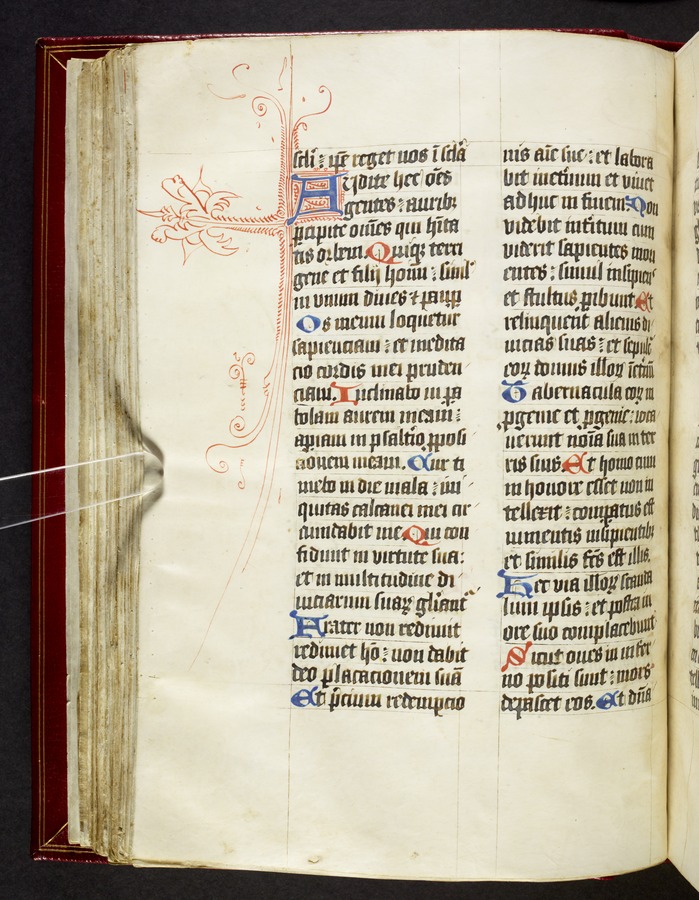 scli : ip̄e reget uos ī sclā
Audite hec oēs
gentes : aurib⁊
ꝑcipite om̄es qui hīta
tis orbem. Quiq⁊ terri
gene et filij homīn : simĺ
in unum diues ⁊ paup̲
Os meum loquetur
sapienciam : et medita
cio cordis mei pruden
ciam. Inclinabo in pa
bolam aurem meam :
apiam in psaltīo ꝓposi
cionem meam. Cur ti
mebo in die mala : ini
quitas calcanei mei cir
cumdabit me. Qui con
fidunt in uirtute sua :
et in multitudine di
uiciarum suaꝝ gl̄iant᷑
Frater non redimit
redimet hō : non dabit
deo placacionem suā
Et p̄cium redempcio
nis aīe sue : et labora
bit inet̄num et uiuet
adhuc in finem. Non
videbit int̄itum cum
viderit sapientes mori
entes : simul insipiens
et stultus ꝑibunt. Et
relinquent alienis di
uicias suas : et sepulc̄
eoꝝ domus illoꝝ īet̄nū
Tabernacula eoꝝ in
ꝓgenie et ꝓgenie : uoca
uerunt noīa sua in ter
ris suis. Et homo cum
in honore esset non in
tellexit : comꝑatus est
iumentis insipientib⁊
et similis fc̄s est illis.
Hec via illoꝝ scanda
lum ipsis : et postea in
ore suo complacebunt
Sicut oues in infer
no positi sunt : mors
depascet eos. Et dn̄a